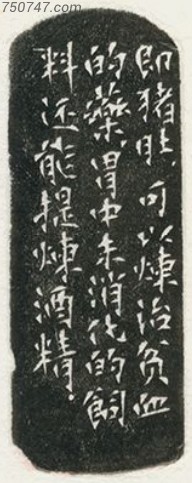 750747.com
即猪肚,可以煉治贫血
的藥,胃中未消化的飼
料还能提煉酒精.